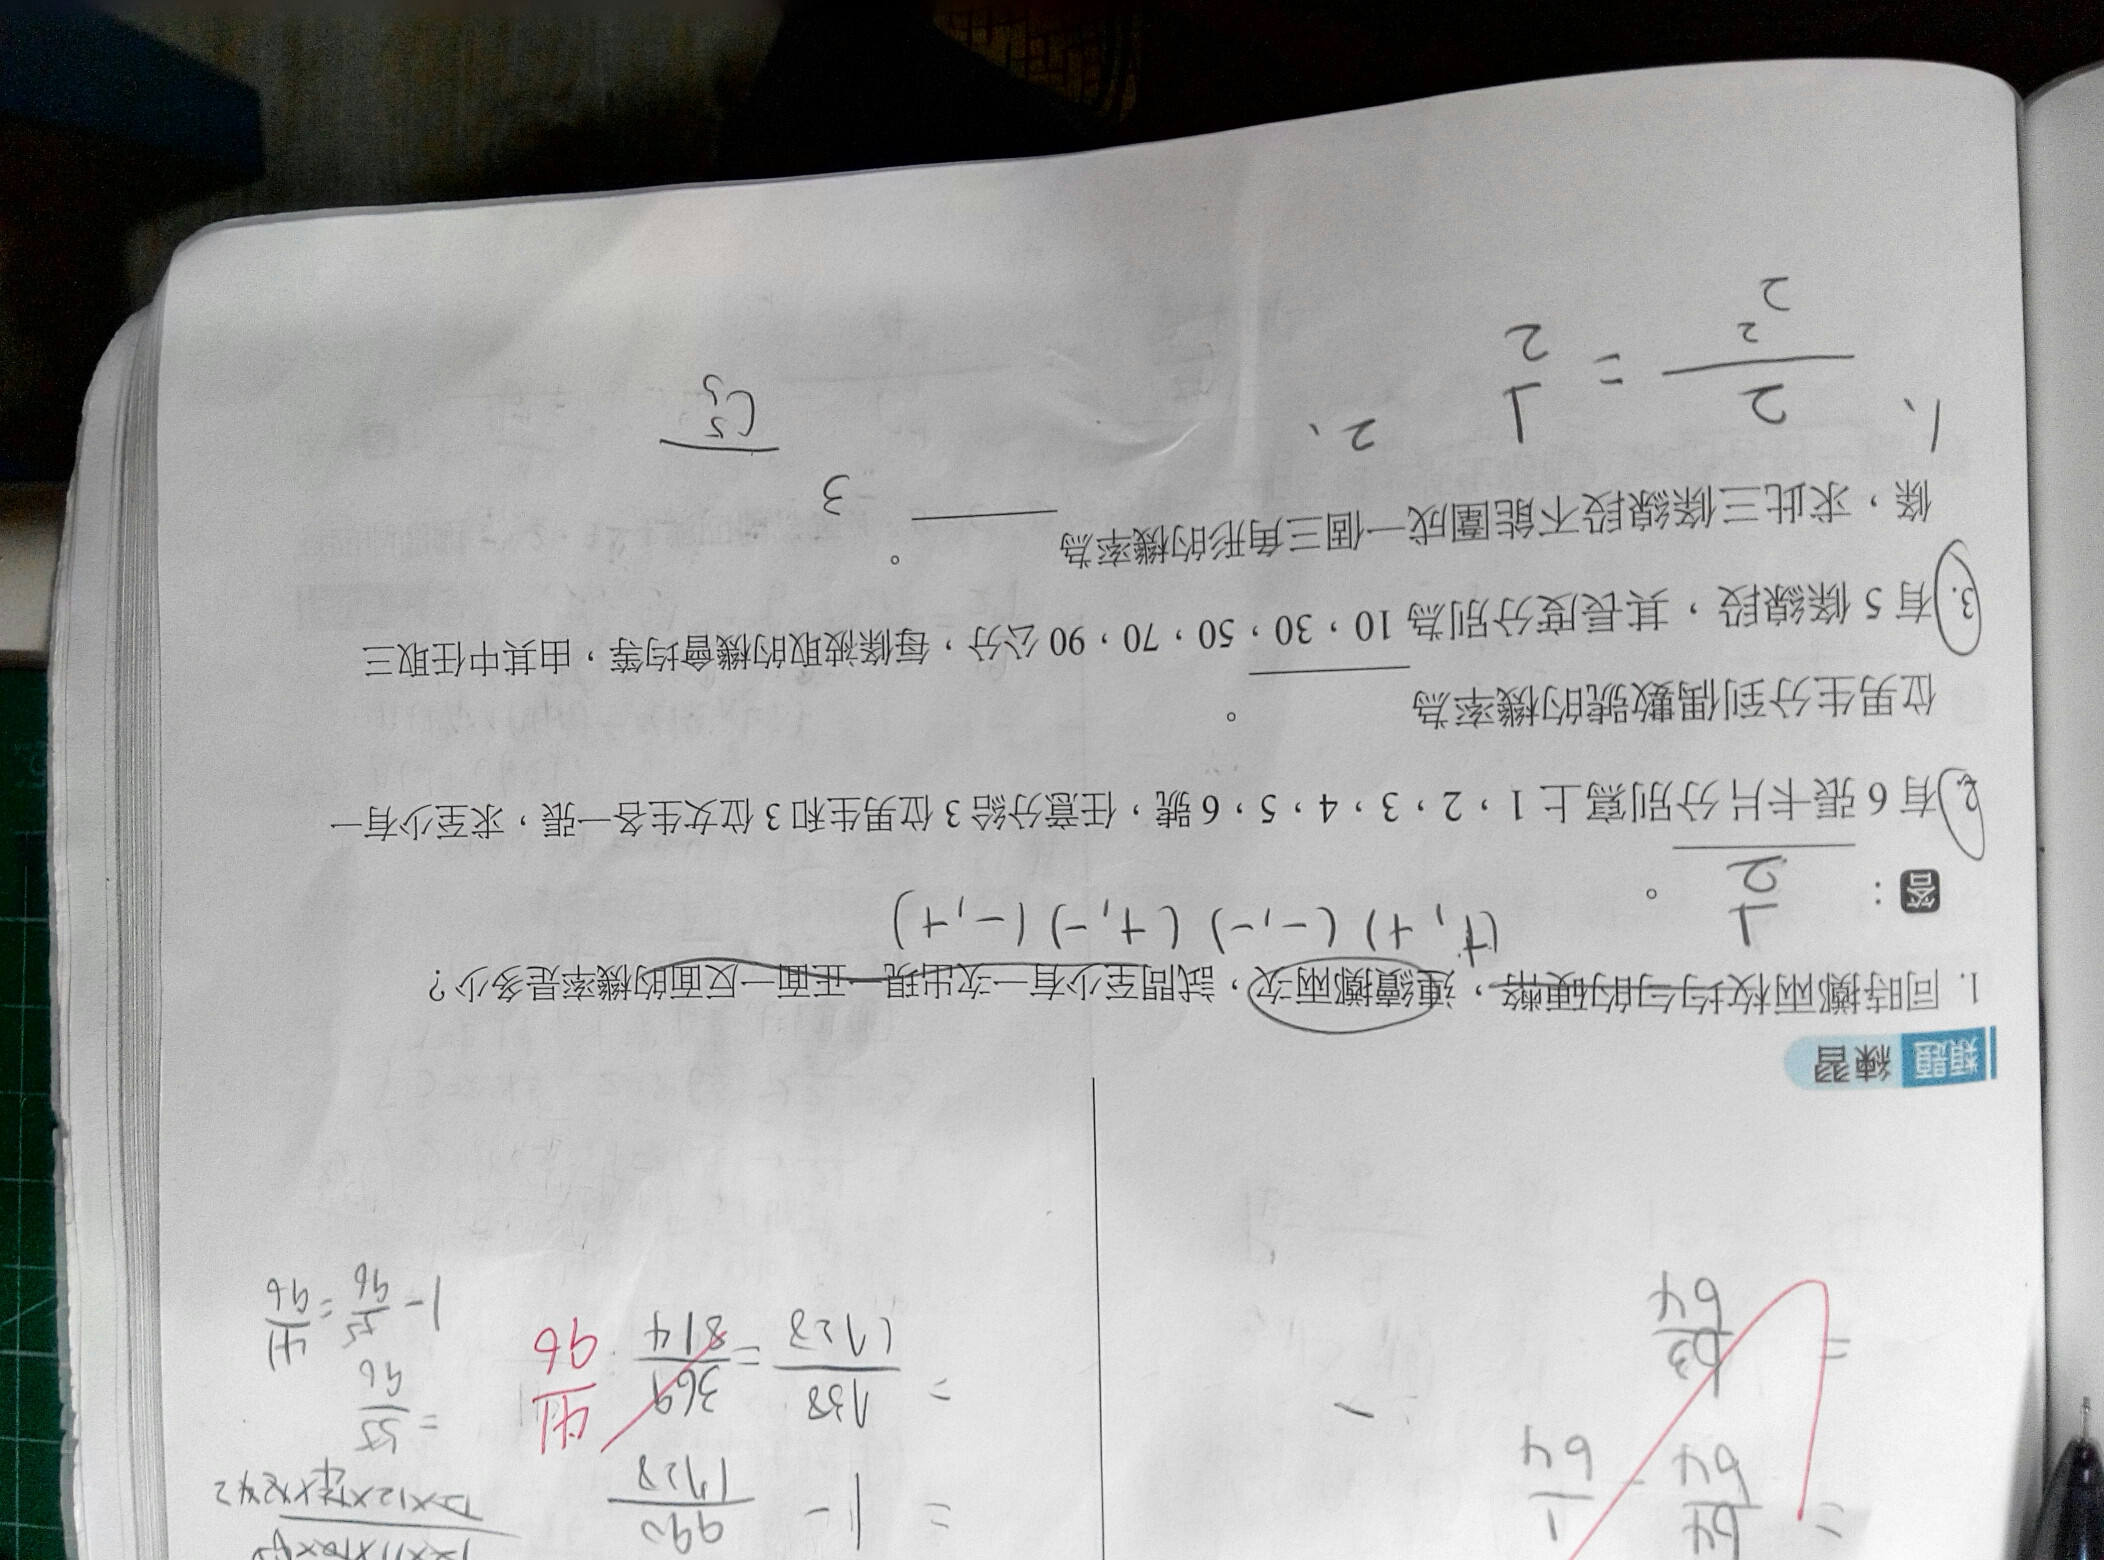 = 64/64 - 1/64
= 63/64
= 1 - 990/1728
= 738/1728 = 369/814 41/96
= 55/96
1 - 55/96 = 41/96
類題 練習
1. 同時擲兩枚均勻的硬幣，連續擲兩次，試問至少有一次出現一正面一反面的機率是多少？
(+, +) (-, -) (+, -) (-, +)
答： 1/2 。
2. 有 6 張卡片分別寫上 1，2，3，4，5，6 號，任意分給 3 位男生和 3 位女生各一張，求至少有一
位男生分到偶數號的機率為 。
3. 有 5 條線段，其長度分別為 10，30，50，70，90 公分，每條被取的機會均等，由其中任取三
條，求此三條線段不能圍成一個三角形的機率為 。
1、 2/2² = 1/2
2
2、
3
C⁵₃